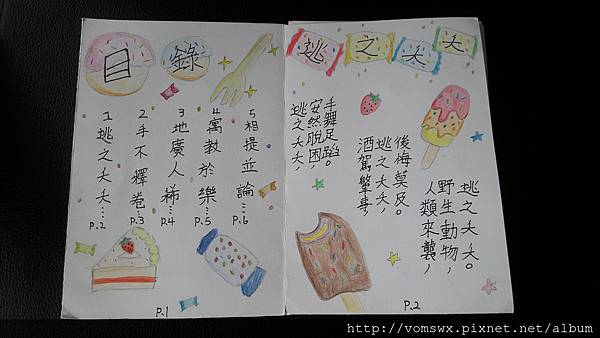 目錄
1逃之夭夭…P.2
2手不釋卷…P.3
3地廣人稀…P.4
4寓教於樂…P.5
5相提並論…P.6
P.1
逃之夭夭
逃之夭夭。
野生動物,
人類來襲,
後悔莫及。
逃之夭夭,
酒駕肇事,
手舞足蹈。
安然脫困,
逃之夭夭,
P.2
http://vomswx.pixnet.net/album